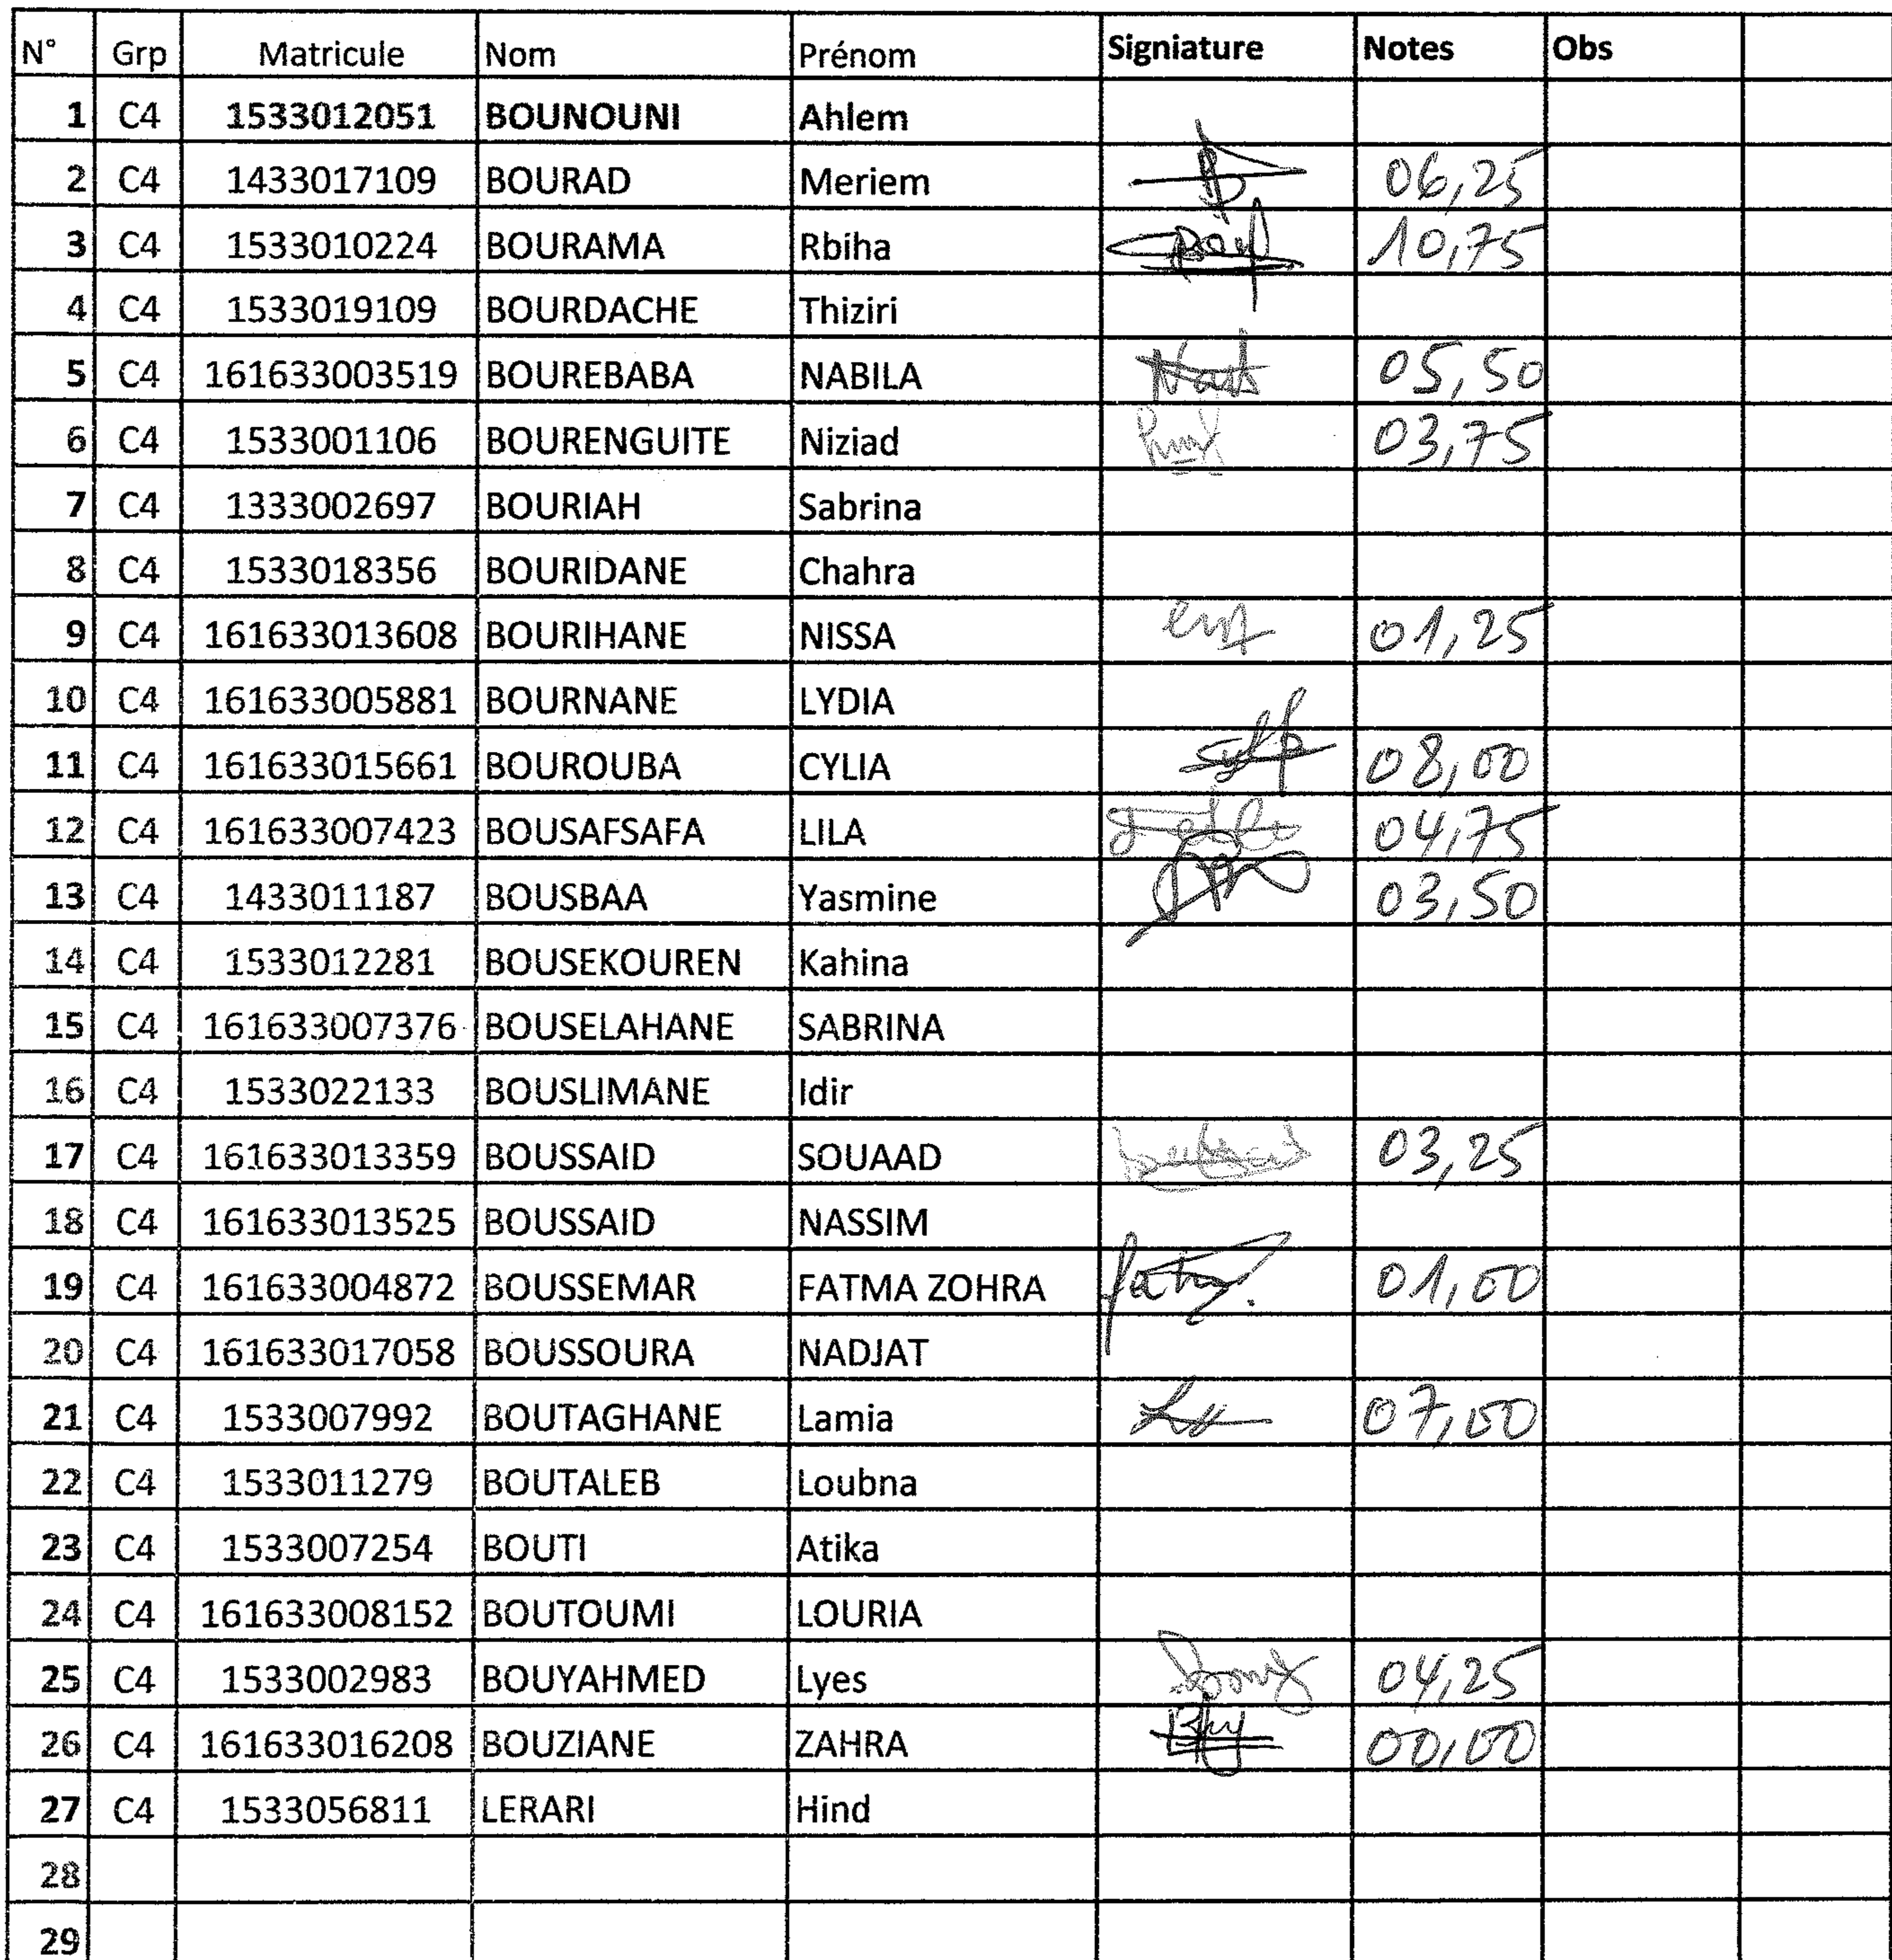 N° Grp Matricule Nom Prénom Signiature Notes Obs
1 C4 1533012051 BOUNOUNI Ahlem
2 C4 1433017109 BOURAD Meriem 06,25
3 C4 1533010224 BOURAMA Rbiha 10,75
4 C4 1533019109 BOURDACHE Thiziri
5 C4 161633003519 BOUREBABA NABILA 05,50
6 C4 1533001106 BOURENGUITE Niziad 03,75
7 C4 1333002697 BOURIAH Sabrina
8 C4 1533018356 BOURIDANE Chahra
9 C4 161633013608 BOURIHANE NISSA 01,25
10 C4 161633005881 BOURNANE LYDIA
11 C4 161633015661 BOUROUBA CYLIA 08,00
12 C4 161633007423 BOUSAFSAFA LILA 04,75
13 C4 1433011187 BOUSBAA Yasmine 03,50
14 C4 1533012281 BOUSEKOUREN Kahina
15 C4 161633007376 BOUSELAHANE SABRINA
16 C4 1533022133 BOUSLIMANE Idir
17 C4 161633013359 BOUSSAID SOUAAD 03,25
18 C4 161633013525 BOUSSAID NASSIM
19 C4 161633004872 BOUSSEMAR FATMA ZOHRA 01,00
20 C4 161633017058 BOUSSOURA NADJAT
21 C4 1533007992 BOUTAGHANE Lamia 07,00
22 C4 1533011279 BOUTALEB Loubna
23 C4 1533007254 BOUTI Atika
24 C4 161633008152 BOUTOUMI LOURIA
25 C4 1533002983 BOUYAHMED Lyes 04,25
26 C4 161633016208 BOUZIANE ZAHRA 00,00
27 C4 1533056811 LERARI Hind
28
29